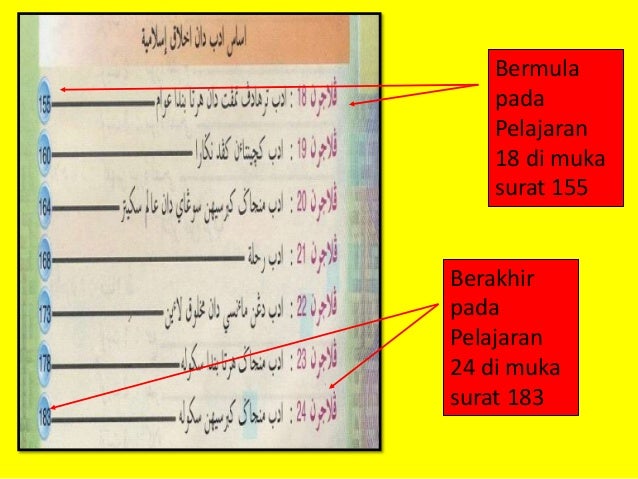 اساس ادب دان اخلاق إسلامية
ڤلاجرن 18 : ادب ترهادڤ تمڤت دان هرتا بندا عوام 155
ڤلاجرن 19 : ادب كچينتاٴن كڤد نݢارا 160
ڤلاجرن 20 : ادب منجاݢ كبرسيهن سوڠاي دان عالم سكيتر 164
ڤلاجرن 21 : ادب رحلة 168
ڤلاجرن 22 : ادب دڠن مأنسي دان مخلوق لاٴين 173
ڤلاجرن 23 : ادب منجاݢ هرتا بندا سكوله 178
ڤلاجرن 24 : ادب منجاݢ كبرسيهن سكوله 183
Bermula
pada
Pelajaran
18 di muka
surat 155
Berakhir
pada
Pelajaran
24 di muka
surat 183